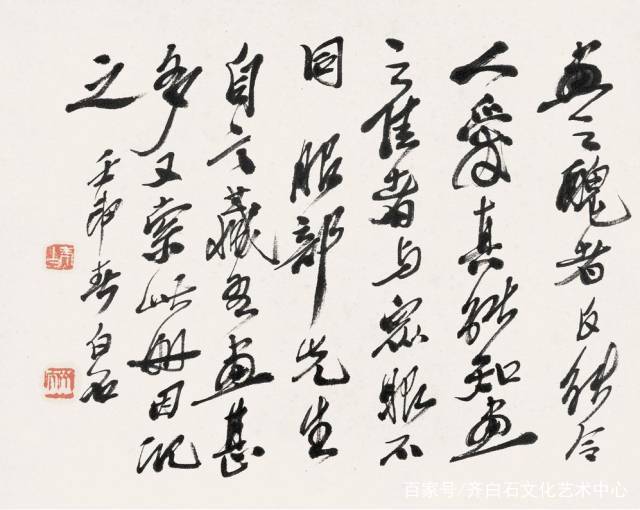 畫之醜者反能令
人愛真能知畫
之佳者与衆眼不
同 服部先生
自言藏吾畫甚
多又索此册因記
之 壬申春白石
百家号/齐白石文化艺术中心